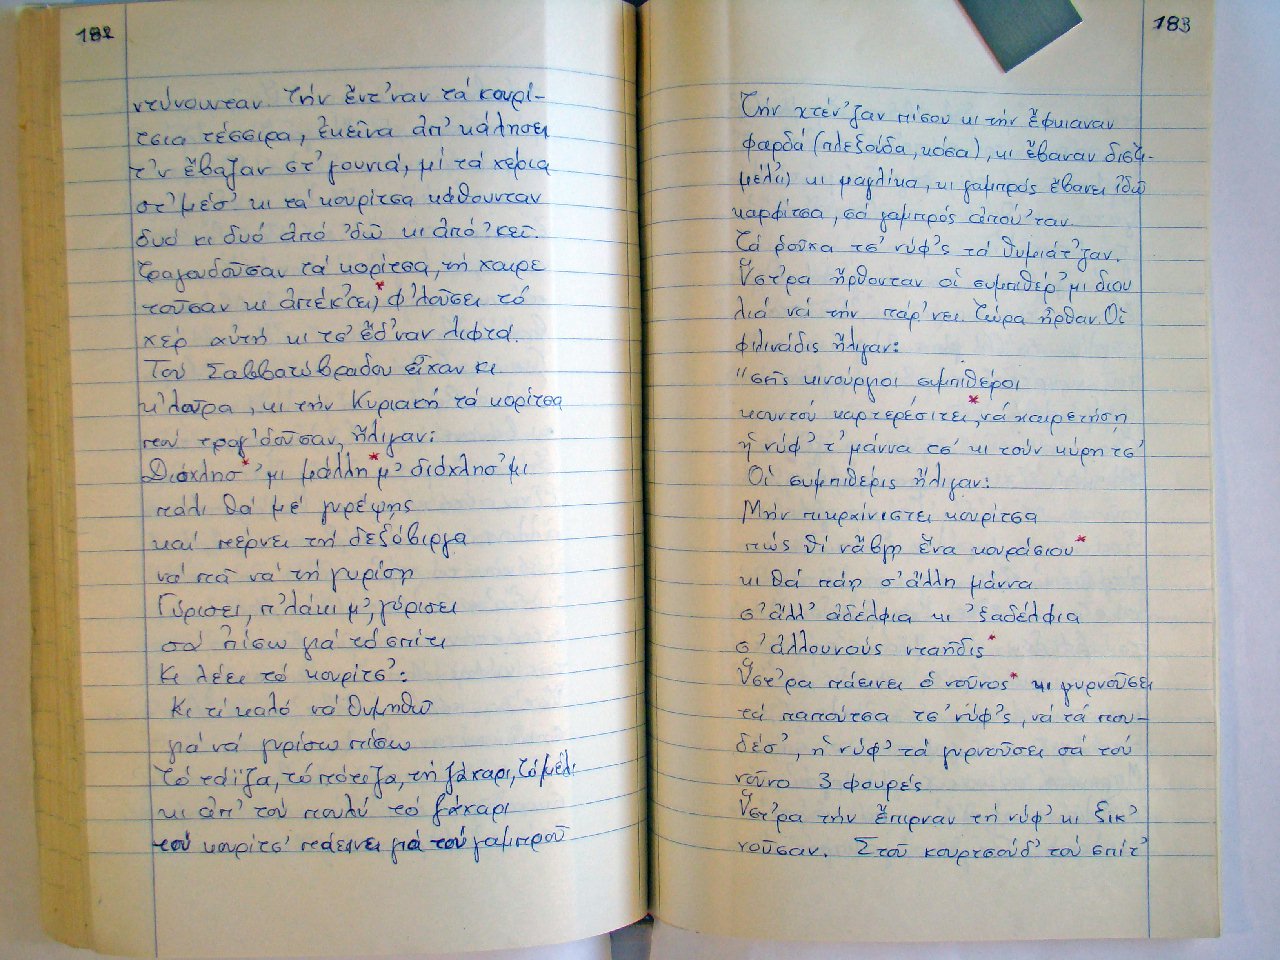 182
ντύνουνταν. Τήν ἔντ'ναν τά κουρί-
τσια τέσσιρα, ἐκεῖνα ἀπ' κάλησει
τ'ν ἔβαζαν στ' γουνιά, μί τά χέρια
στ' μέσ' κι τά κουρίτσα κάθουνταν
δυό κι δυό ἀπό 'δῶ κι ἀπό 'κεῖ.
Τραγουδοῦσαν τά κορίτσα, τή χαιρε
τοῦσαν κι ἀπέκ'(ει)* φ'λοῦσει τό
χέρ αὐτή κι τσ' ἔδ'ναν λιφτά.
Τού Σαββατόβραδου εἶχαν κι
κ'λοῦρα, κι τήν Κυριακή τά κορίτσα
πού τραγ'δοῦσαν, ἤλιγαν:
Διόχλησ'* 'μι μάλλη* μ' διόχλησ' μι
πάλι θά μέ γυρέψῃς
καί πέρνει τή δεξόβιργα
νά πᾶ νά τή γυρίση
Γύρισει, π'λάκι μ', γύρισει
σά πίσω γιά τό σπίτι
Κι λέει τό κουρίτσ':
Κι τί καλό νά θυμηθῶ
γιά νά γυρίσω πίσω
Τό τάϊζα, τό πότιζα, τή ζάχαρι, τό μέλι
κι ἀπ' τού πουλύ τό ζάχαρι
τού κουρίτσ' πάεινει γιά τού γαμπροῦ
183
Τήν χτέν'ζαν πίσου κι τήν ἔφκιαναν
φαρδά (πλεξούδα, κόσα), κι ἔβαναν
κι μαγλίκα, κι γαμπρός ἔβανει ἰδῶ
καρφίτσα, σά γαμπρός ἀπού 'ταν.
Τά ροῦχα τσ' νύφ'ς τά θυμιάτ'ζαν.
Ὕστ'ρα ἤρθουνταν οἱ συμπιθέρ' μι βιου
λιά νά τήν πάρ'νει. Τώρα ἦρθαν. Οἱ
φιλινάδις ἤλιγαν:
"σεῖς κινούργιοι συμπιθέροι
κουντού καρτερέσιτει*, νά χαιρετήση
ἡ νύφ' τ' μάννα τσ' κι τούν κύρη τσ'
Οἱ συμπιθέρις ἤλιγαν:
Μήν πικραίνιστει κουρίτσα
πώς θί νἄβγῃ ἕνα κουράσιου*
κι θά πάῃ σ' ἄλλη μάννα
σ' ἄλλ' ἀδέλφια κι 'ξαδέλφια
σ' ἀλλουνούς νταῆδις*
Ὕστ'ρα πάεινει ὁ νοῦνος* κι γυρνοῦσει
τά παπούτσα τσ' νύφ'ς, νά τά που-
δέσ', ἡ νύφ' τά γυρνοῦσει σά τού
νοῦνο 3 φουρές.
Ὕστ'ρα τήν ἔπιρναν τή νύφ' κι ξικ'
νοῦσαν. Στοῦ κουρτσούδ' τού σπίτ'